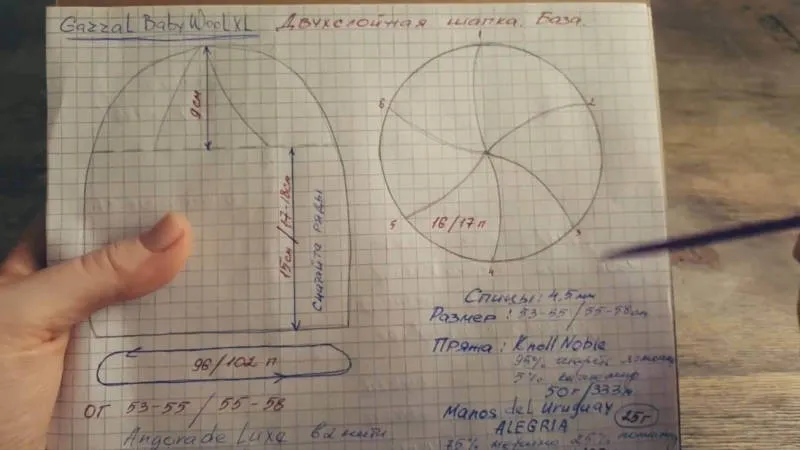 Gazzal Baby Wool XL Двухслойная шапка. База.
1
2
3
4
5
6
9см
15см/17-18см
Считайте ряды
16/17п
96/102 п
ОТ 53-55 / 55-58
Angora de Luxe в 2 нити
Спицы: 4,5 мм
Размер: 53-55/55-58см
Пряжа: Knoll Noble
95%
5% кашемир
50г/333м
Manos del Uruguay 25г
ALEGRIA
75% мерино 25%